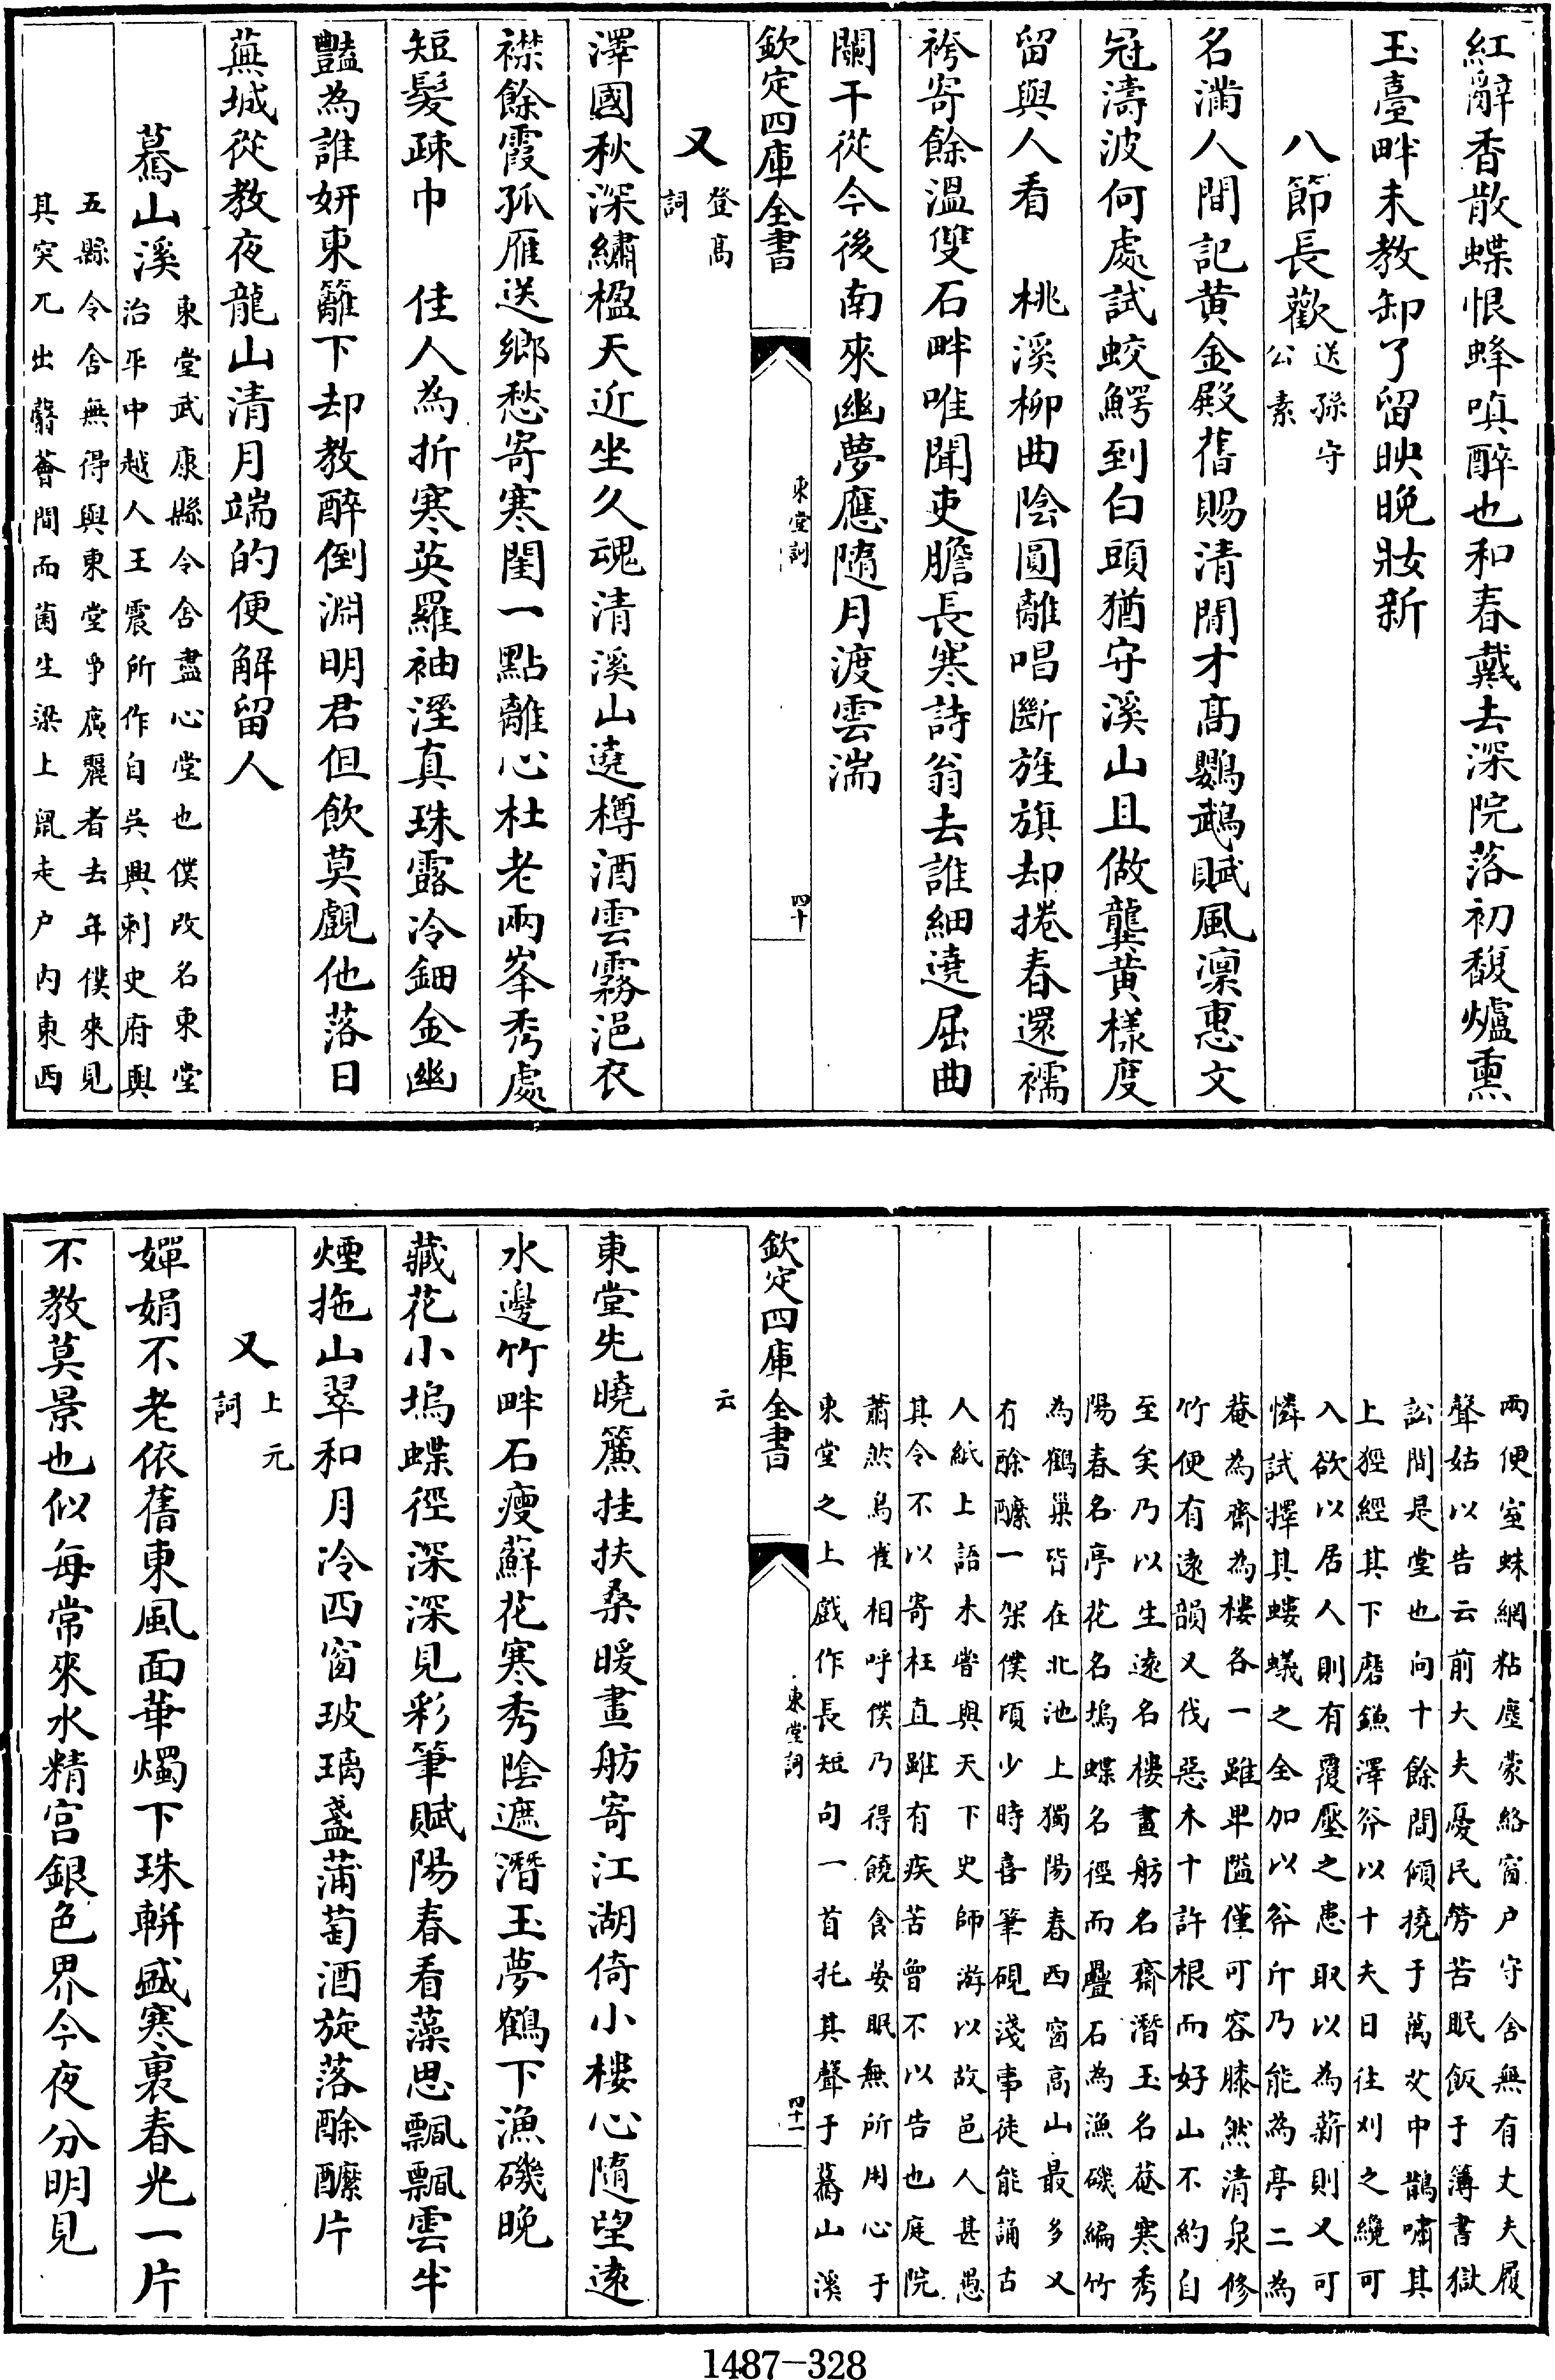 紅辭香散蝶恨蜂嗔醉也和春戴去深院落初馥爐熏
玉臺畔未教卸了留映晚妝新
八節長歡送孫守
公素
名滿人間記黄金殿舊賜清閒才髙鸚鵡賦風凛惠文
冠濤波何處試蛟鰐到白頭猶守溪山且做龔黄樣度
留與人看　桃溪柳曲陰圓離唱斷旌旗却捲春還襦
袴寄餘温雙石畔唯聞吏膽長寒詩翁去誰細遶屈曲
闌干從今後南來幽夢應隨月渡雲湍
欽定四庫全書
東堂詞
四十
又登髙
詞
澤國秋深繡楹天近坐久魂清溪山遶樽酒雲霧浥衣
襟餘霞孤雁送鄉愁寄寒閨一點離心杜老兩峯秀處
短髮疎巾　佳人為折寒英羅袖溼真珠露冷鈿金幽
豔為誰妍東籬下却教醉倒淵明君但飲莫覷他落日
蕪城從教夜龍山清月端的便解留人
驀山溪東堂武康縣令舍盡心堂也僕改名東堂
治平中越人王震所作自吳興刺史府與
五縣令舍無得與東堂爭廣麗者去年僕來見
其突兀出翳薈間而菌生梁上鼠走户内東西
兩便室蛛網粘塵蒙絡窗户守舍無有丈夫履
聲姑以告云前大夫憂民勞苦眠飯于簿書獄
訟間是堂也向十餘間傾撓于萬艾中鵲嘯其
上狴經其下磨鐮澤斧以十夫日往刈之纔可
入欲以居人則有覆壓之患取以為薪則又可
憐試擇其螻蟻之全加以斧斤乃能為亭二為
菴為齋為樓各一雖卑隘僅可容膝然清泉修
竹便有遠韻又伐惡木十許根而好山不約自
至矣乃以生遠名樓畫舫名齋潛玉名菴寒秀
陽春名亭花名塢蝶名徑而疊石為漁磯編竹
為鶴巢皆在北池上獨陽春西窗高山最多又
有酴醾一架僕頃少時喜筆硯淺事徒能誦古
人紙上語未嘗與天下史師游以故邑人甚愚
其令不以寄枉直雖有疾苦曾不以告也庭院
蕭然鳥雀相呼僕乃得饒食晏眠無所用心于
東堂之上戯作長短句一首托其聲于驀山溪
欽定四庫全書
東堂詞
四十一
云
東堂先曉簾挂扶桑暖畫舫寄江湖倚小樓心隨望遠
水邊竹畔石瘦蘚花寒秀陰遮潛玉夢鶴下漁磯晚
藏花小塢蝶徑深深見彩筆賦陽春看藻思飄飄雲半
煙拖山翠和月冷西窗玻璃盞蒲萄酒旋落酴醾片
又上元
詞
嬋娟不老依舊東風面華燭下珠軿盛寒裏春光一片
不教莫景也似每常來水精宫銀色界今夜分明見
1487—328